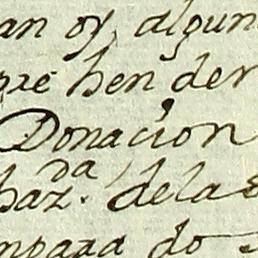 an oy, algun
pre hender
Donacion
haz.da dela
mpara do